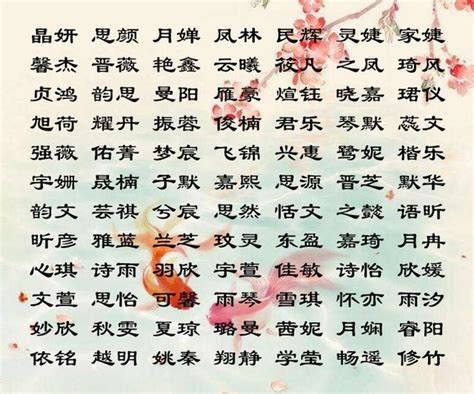 晶妍 思颜 月婵 凤林 民辉 灵婕 家婕
馨杰 晋薇 艳鑫 云曦 筱凡 之凤 琦风
贞鸿 韵思 曼阳 雁豪 煊钰 晓嘉 珺仪
旭荷 耀丹 振蓉 俊楠 君乐 琴默 蕊文
强薇 佑菁 梦宸 飞锦 兴惠 鹭妮 楷乐
宇姗 晟楠 子默 嘉熙 思源 晋芝 默华
韵文 芸祺 兮宸 思然 恬文 之懿 语昕
昕彦 雅蓝 兰芝 玟灵 东盈 嘉琦 月冉
心琪 诗雨 羽欣 宇萱 佳敏 诗怡 欣媛
文萱 思怡 可馨 雨琴 雪琪 怀亦 雨汐
妙欣 秋雯 夏琼 璐曼 茜妮 月娴 睿阳
依铭 越明 姚秦 翔静 学莹 畅遥 修竹